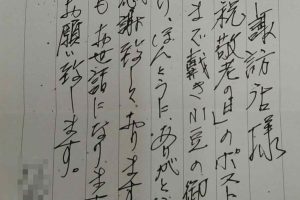 諏訪店様
祝敬老の日」のポスト
まで戴き
り、ほんとうに、ありがと
感謝致して、おります
も お世話になります
お願い致します。